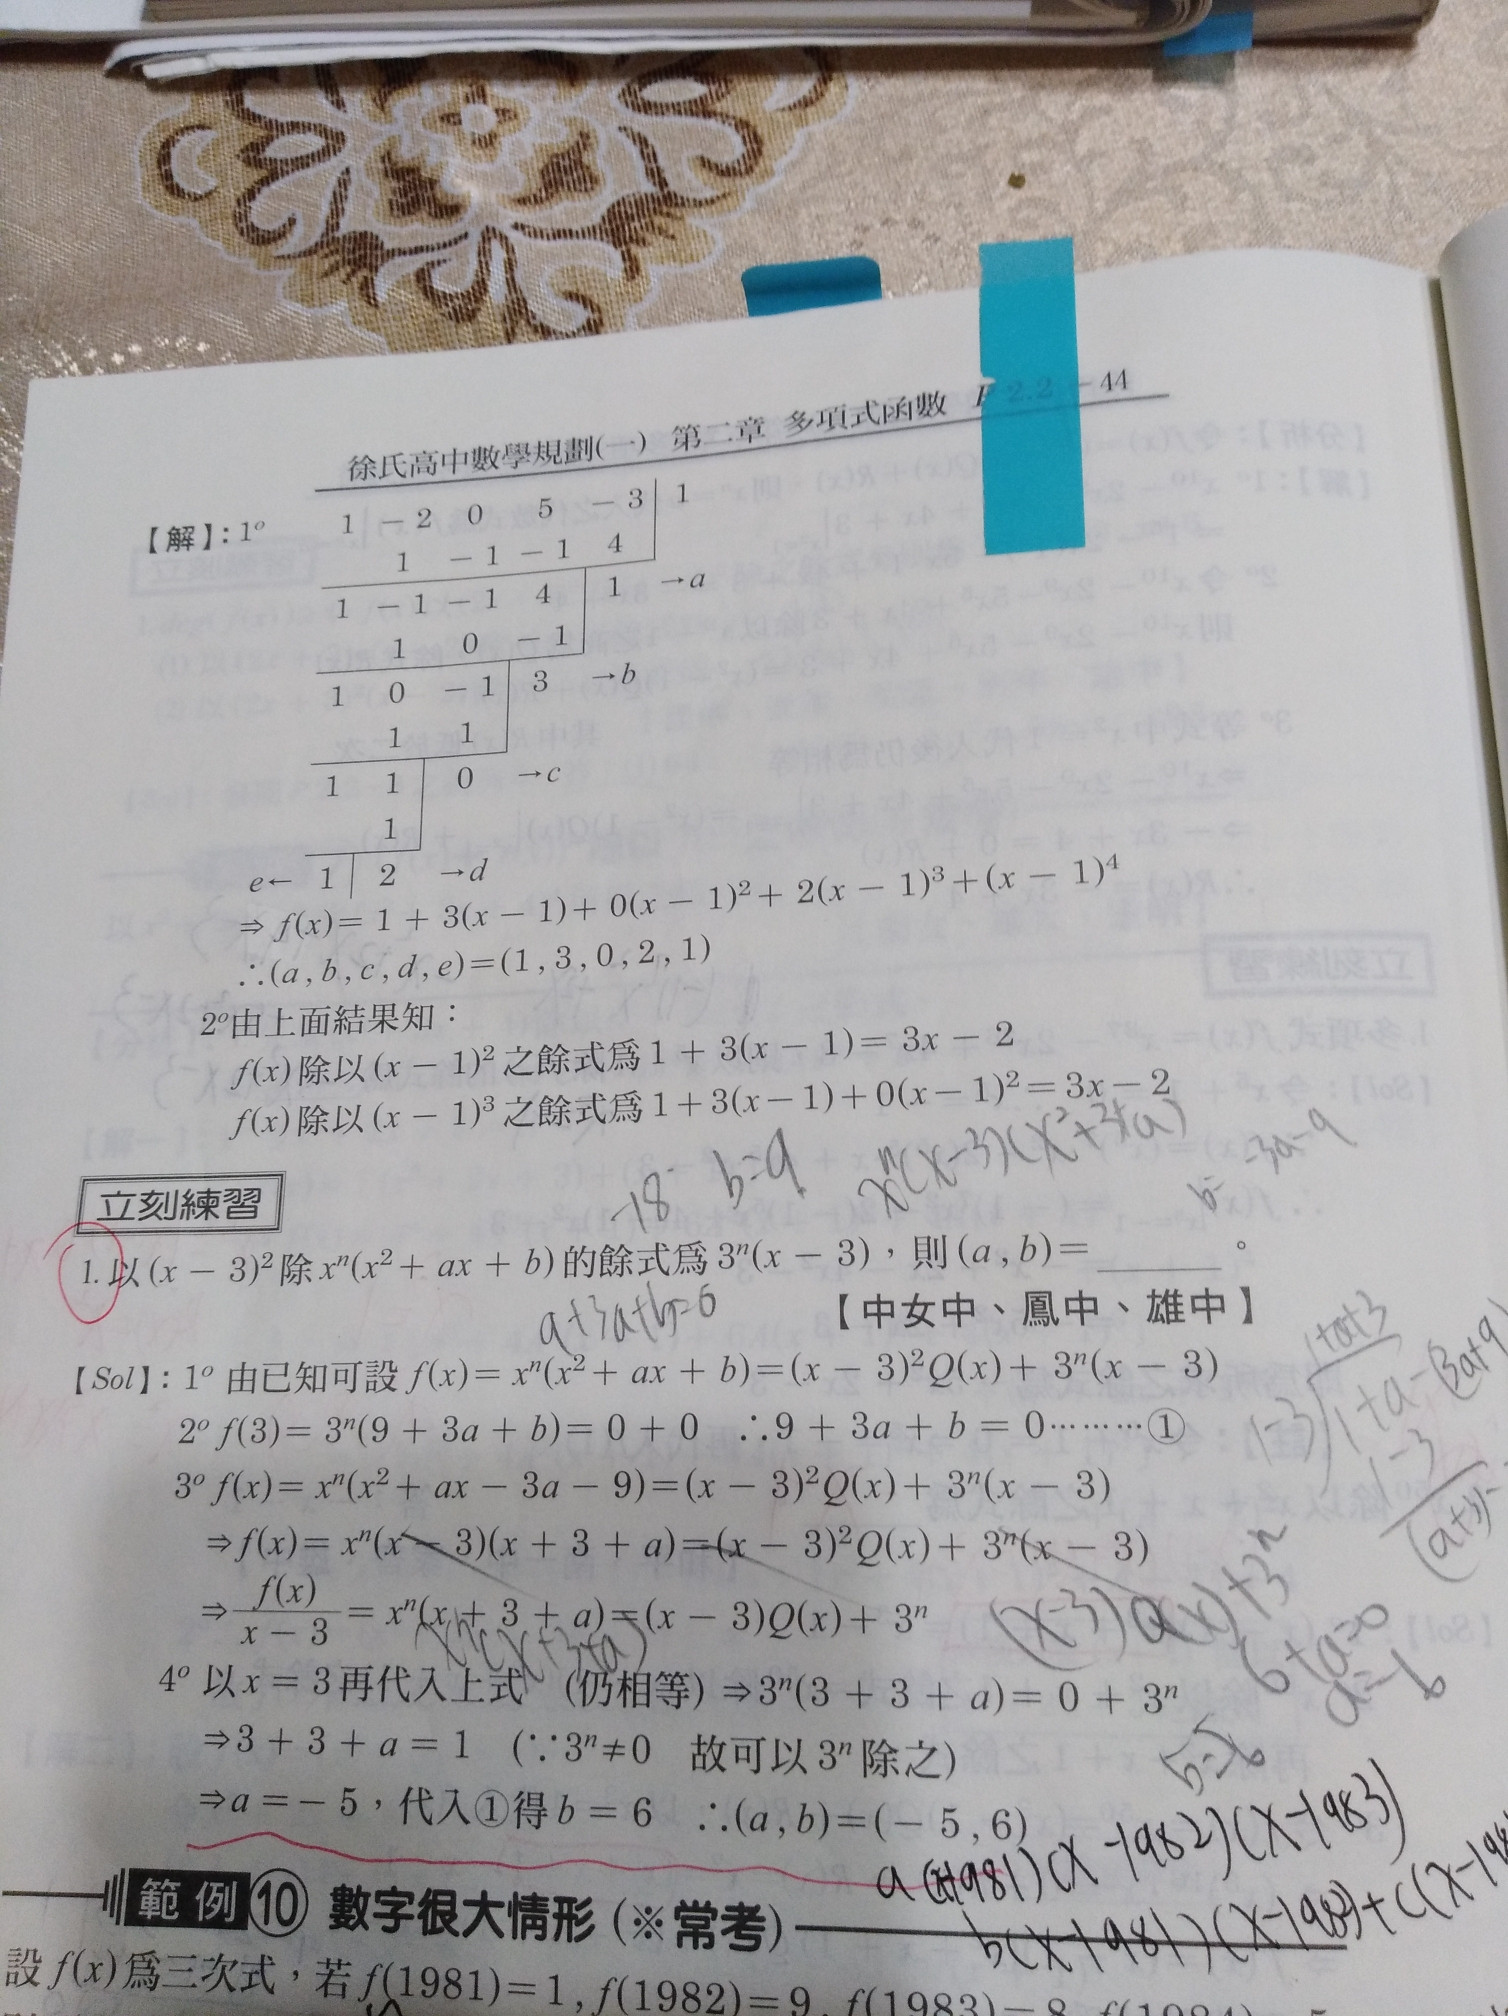 徐氏高中數學規劃(一) 第二章 多項式函數 P 2.2 - 44
【解】：1° 1 - 2 0 5 - 3 | 1
1 - 1 - 1 4
1 - 1 - 1 4 | 1 → a
1 0 - 1
1 0 - 1 | 3 → b
1 1
1 1 | 0 → c
1
e ← 1 | 2 → d
⇒ f(x) = 1 + 3(x - 1) + 0(x - 1)² + 2(x - 1)³ + (x - 1)⁴
∴(a , b , c , d , e) = (1 , 3 , 0 , 2 , 1)
2°由上面結果知：
f(x) 除以 (x - 1)² 之餘式為 1 + 3(x - 1) = 3x - 2
f(x) 除以 (x - 1)³ 之餘式為 1 + 3(x - 1) + 0(x - 1)² = 3x - 2
-18 b=9
b= -3a-9
立刻練習
1. 以 (x - 3)² 除 xⁿ(x² + ax + b) 的餘式為 3ⁿ(x - 3)，則 (a , b) = ______ 。
【中女中、鳳中、雄中】
【Sol】：1° 由已知可設 f(x) = xⁿ(x² + ax + b) = (x - 3)²Q(x) + 3ⁿ(x - 3)
2° f(3) = 3ⁿ(9 + 3a + b) = 0 + 0 ∴9 + 3a + b = 0………①
3° f(x) = xⁿ(x² + ax - 3a - 9) = (x - 3)²Q(x) + 3ⁿ(x - 3)
⇒ f(x) = xⁿ(x - 3)(x + 3 + a) = (x - 3)²Q(x) + 3ⁿ(x - 3)
⇒ f(x)/(x - 3) = xⁿ(x + 3 + a) = (x - 3)Q(x) + 3ⁿ
xⁿ(x+3+a) (x-3)Q(x)+3ⁿ
6+a=0
4° 以 x = 3 再代入上式 (仍相等) ⇒ 3ⁿ(3 + 3 + a) = 0 + 3ⁿ
⇒ 3 + 3 + a = 1 (∵3ⁿ ≠ 0 故可以 3ⁿ 除之)
⇒ a = - 5，代入①得 b = 6 ∴(a , b) = (- 5 , 6)
範例⑩ 數字很大情形 (※常考)
設 f(x) 為三次式，若 f(1981) = 1 , f(1982) = 9 , f(1983) = 8